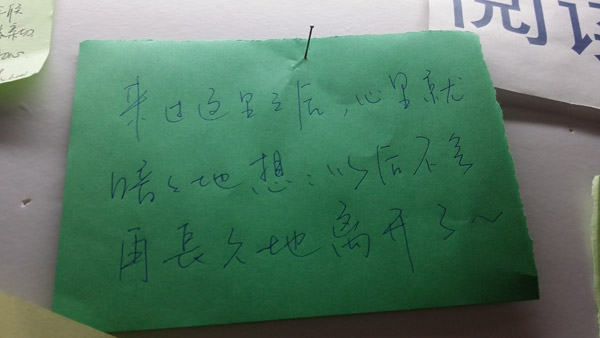 来过这里之后,心里就
暗々地想:以后不会
再長久地离开了~
阅读